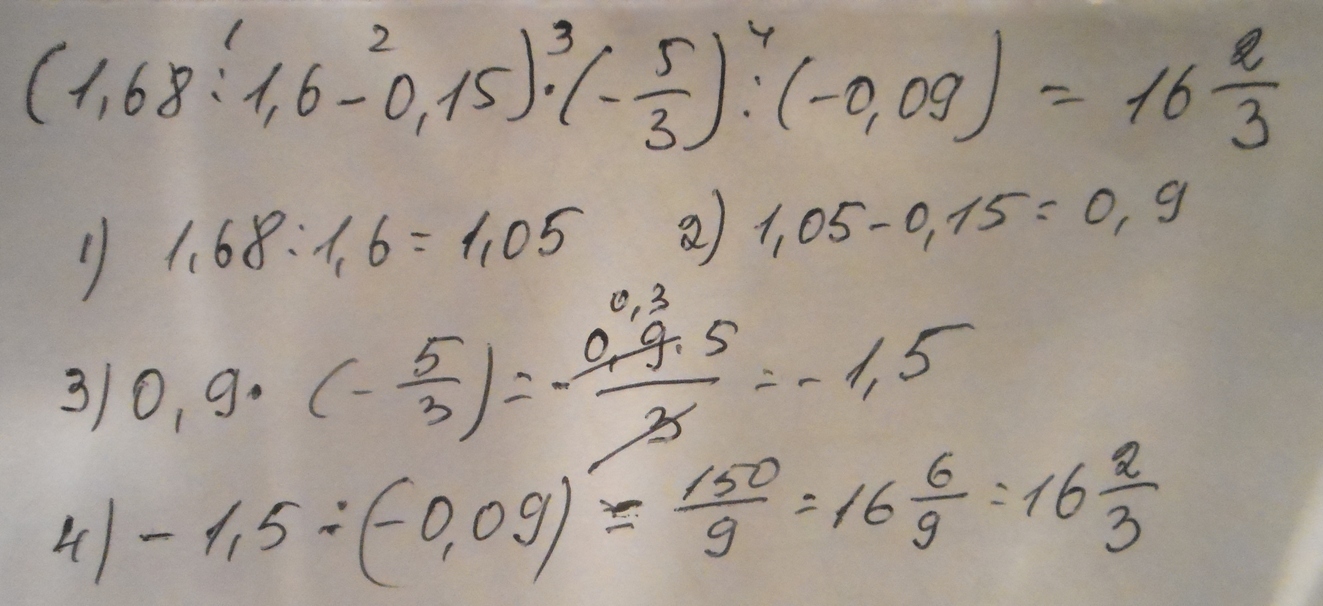 (1,68 : 1,6 - 0,15) · (-5/3) : (-0,09) = 16 2/3
1 2 3 4
1) 1,68 : 1,6 = 1,05 2) 1,05 - 0,15 = 0,9
3) 0,9 · (-5/3) = - 0,9 · 5 / 3 = - 1,5
0,3
4) - 1,5 : (-0,09) = 150/9 = 16 6/9 = 16 2/3